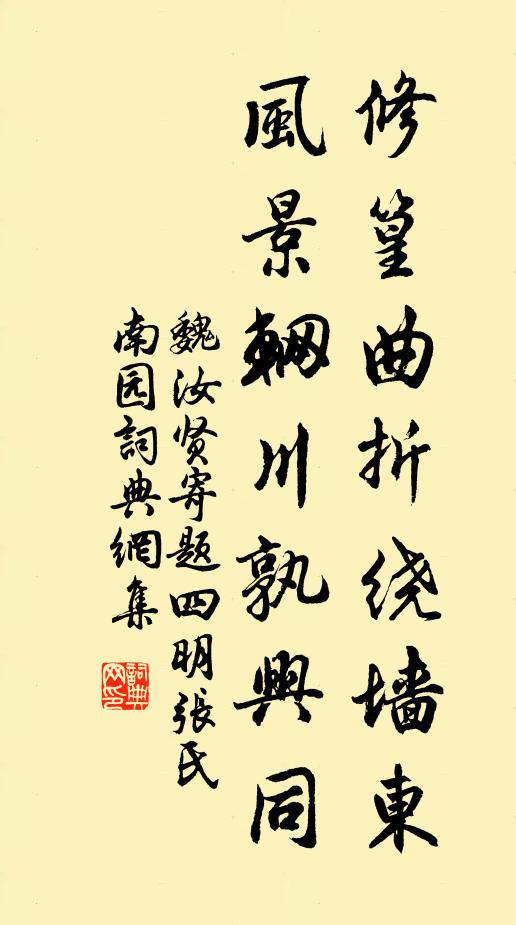 修篁曲折绕墙東
風景輞川孰與同
魏汝贤寄题四明張氏
南园詞典網集
詞典网印